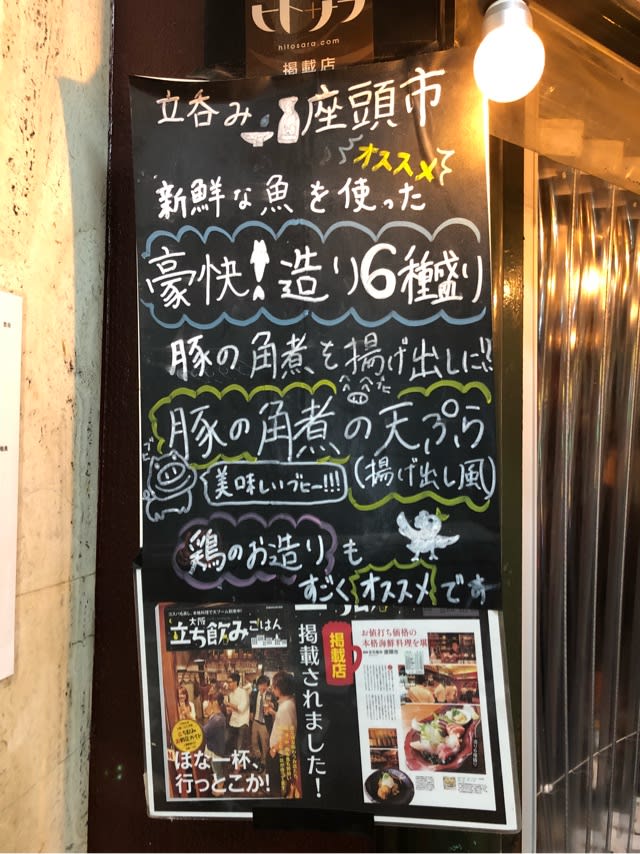 ヒトサラ
hitosara.com
掲載店
立呑み 座頭市
オススメ
新鮮な魚を使った
豪快!造り6種盛り
豚の角煮を揚げ出しに!!
豚の角煮の天ぷら
(揚げ出し風)
ブヒ
美味しいブヒー!!!
鶏のお造りも
すごくオススメです
大阪
立ち飲みごはん
ほな一杯、
行っとこか!
掲載されました!
掲載店
お値打ち価格の
本格海鮮料理を堪